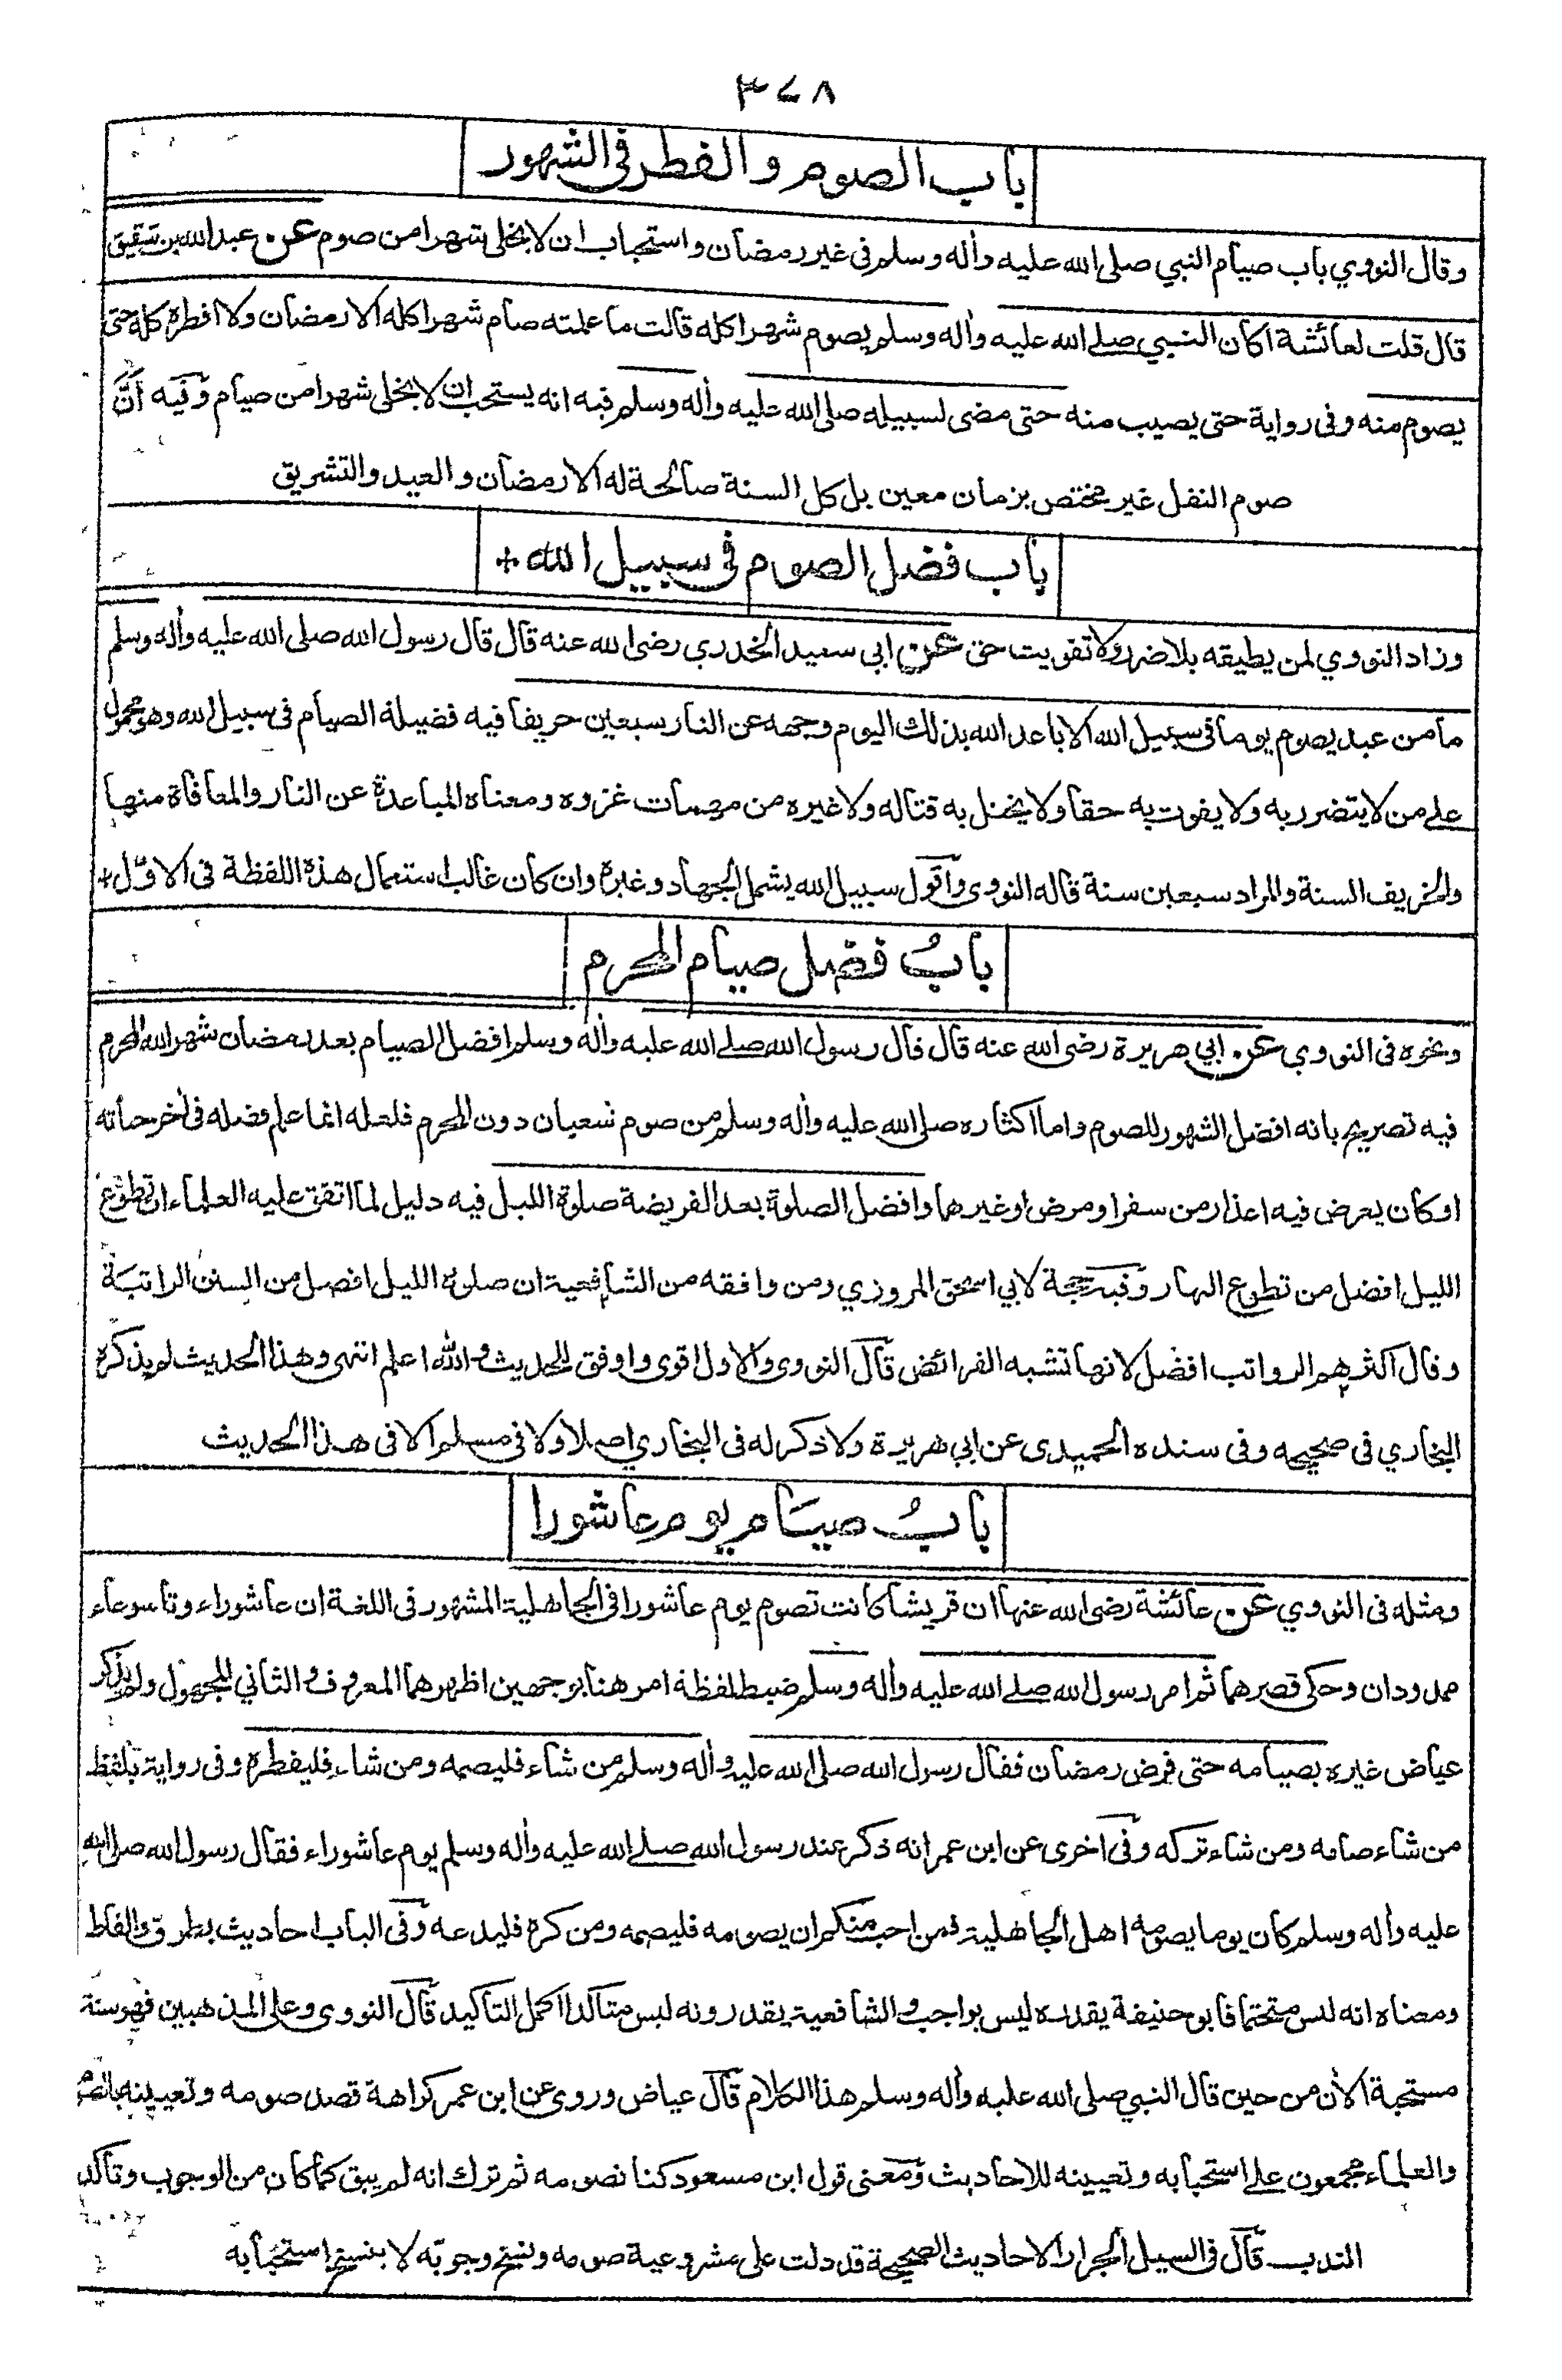 ٣٧٨
باب الصوم والفطر فى الشهور
وقال النووي باب صيام النبي صلى الله عليه وأله وسلم فى غير رمضان واستحباب ان لا يخلى شهرا من صوم عن عبد الله بن شقيق
قال قلت لعائشة اكان النبي صلے الله عليه وأله وسلم يصوم شهرا كله قالت ما علمته صام شهرا كله الا رمضان ولا افطره كله حتى
يصوم منه وفى رواية حتى يصيب منه حتى مضى لسبيله صلى الله عليه وأله وسلم فيه انه يستحب ان لا يخلى شهرا من صيام وفيه انّ
صوم النفل غير مختص بزمان معين بل كل السنة صالحة له الا رمضان والعيد والتشريق
باب فضل الصوم فى سبيل الله +
وزاد النووي لمن يطيقه بلا ضرر ولا تفويت حق عن ابي سعيد الخدري رضى الله عنه قال قال رسول الله صلى الله عليه وأله وسلم
ما من عبد يصوم يوما فى سبيل الله الا باعد الله بذلك اليوم وجهه عن النار سبعين خريفا فيه فضيلة الصيام فى سبيل الله وهو محمول
على من لا يتضرر به ولا يفوت به حقا ولا يختل به قتاله ولا غيره من مهمات غزوه ومعناه المباعدة عن النار والمعافاة منها
والخريف السنة والمراد سبعين سنة قاله النووى وأقول سبيل الله يشمل الجهاد وغيره وان كان غالب استعمال هذه اللفظة فى الاوّل +
بابُ فضل صيام المحرم
ونحوه فى النووي عن ابي هريرة رضى الله عنه قال قال رسول الله صلے الله عليه وأله وسلم افضل الصيام بعد رمضان شهر الله المحرم
فيه تصريح بانه افضل الشهور للصوم واما اكثاره صلى الله عليه وأله وسلم من صوم شعبان دون المحرم فلعله انما علم فضله فى أخر حياته
او كان يعرض فيه اعذار من سفر او مرض او غيرهما وافضل الصلوة بعد الفريضة صلوة الليل فيه دليل لما اتفق عليه العلماء ان تطوع
الليل افضل من تطوع النهار وفيه حجة لابي اسحق المروزي ومن وافقه من الشافعية ان صلوة الليل افضل من السنن الراتبة
وقال اكثرهم الرواتب افضل لانها تشبه الفرائض قال النووى والاول اقوى واوفق للحديث والله اعلم انتهى وهذا الحديث لم يذكره
البخاري فى صحيحه وفى سنده الحميدى عن ابي هريرة ولا ذكر له فى البخاري اصلا ولا فى مسلم الا فى هذا الحديث
بابُ صيام يوم عاشورا
ومثله فى النووي عن عائشة رضى الله عنها ان قريشا كانت تصوم يوم عاشورا فى الجاهلية المشهور فى اللغة ان عاشوراء وتاسوعاء
ممدودان وحكى قصرهما ثم امر رسول الله صلے الله عليه وأله وسلم ضبط لفظة امر هنا بوجهين اظهرهما المعروف والثاني للمجهول ولم يذكر
عياض غيره بصيامه حتى فرض رمضان فقال رسول الله صلى الله عليه وأله وسلم من شاء فليصمه ومن شاء فليفطره وفى رواية بلفظ
من شاء صامه ومن شاء تركه وفى اخرى عن ابن عمر انه ذكر عند رسول الله صلے الله عليه وأله وسلم يوم عاشوراء فقال رسول الله صلى الله
عليه وأله وسلم كان يوما يصومه اهل الجاهلية فمن احب منكم ان يصومه فليصمه ومن كره فليدعه وفى الباب احاديث بطرق والفاظ
ومعناه انه ليس متحتما فابو حنيفة يقدره ليس بواجب والشافعية يقدرونه ليس متاكدا اكمل التاكيد قال النووى وعلى المذهبين فهو سنة
مستحبة الأن من حين قال النبي صلى الله عليه وأله وسلم هذا الكلام قال عياض وروى عن ابن عمر كراهة قصد صومه وتعيينه بالصوم
والعلماء مجمعون على استحبابه وتعيينه للاحاديث ومعنى قول ابن مسعود كنا نصومه ثم ترك انه لم يبق كما كان من الوجوب وتاكد
الندب قال فى السيل الجرار الاحاديث الصحيحة قد دلت على مشروعية صومه ونسخ وجوبه لا ينسخ استحبابه